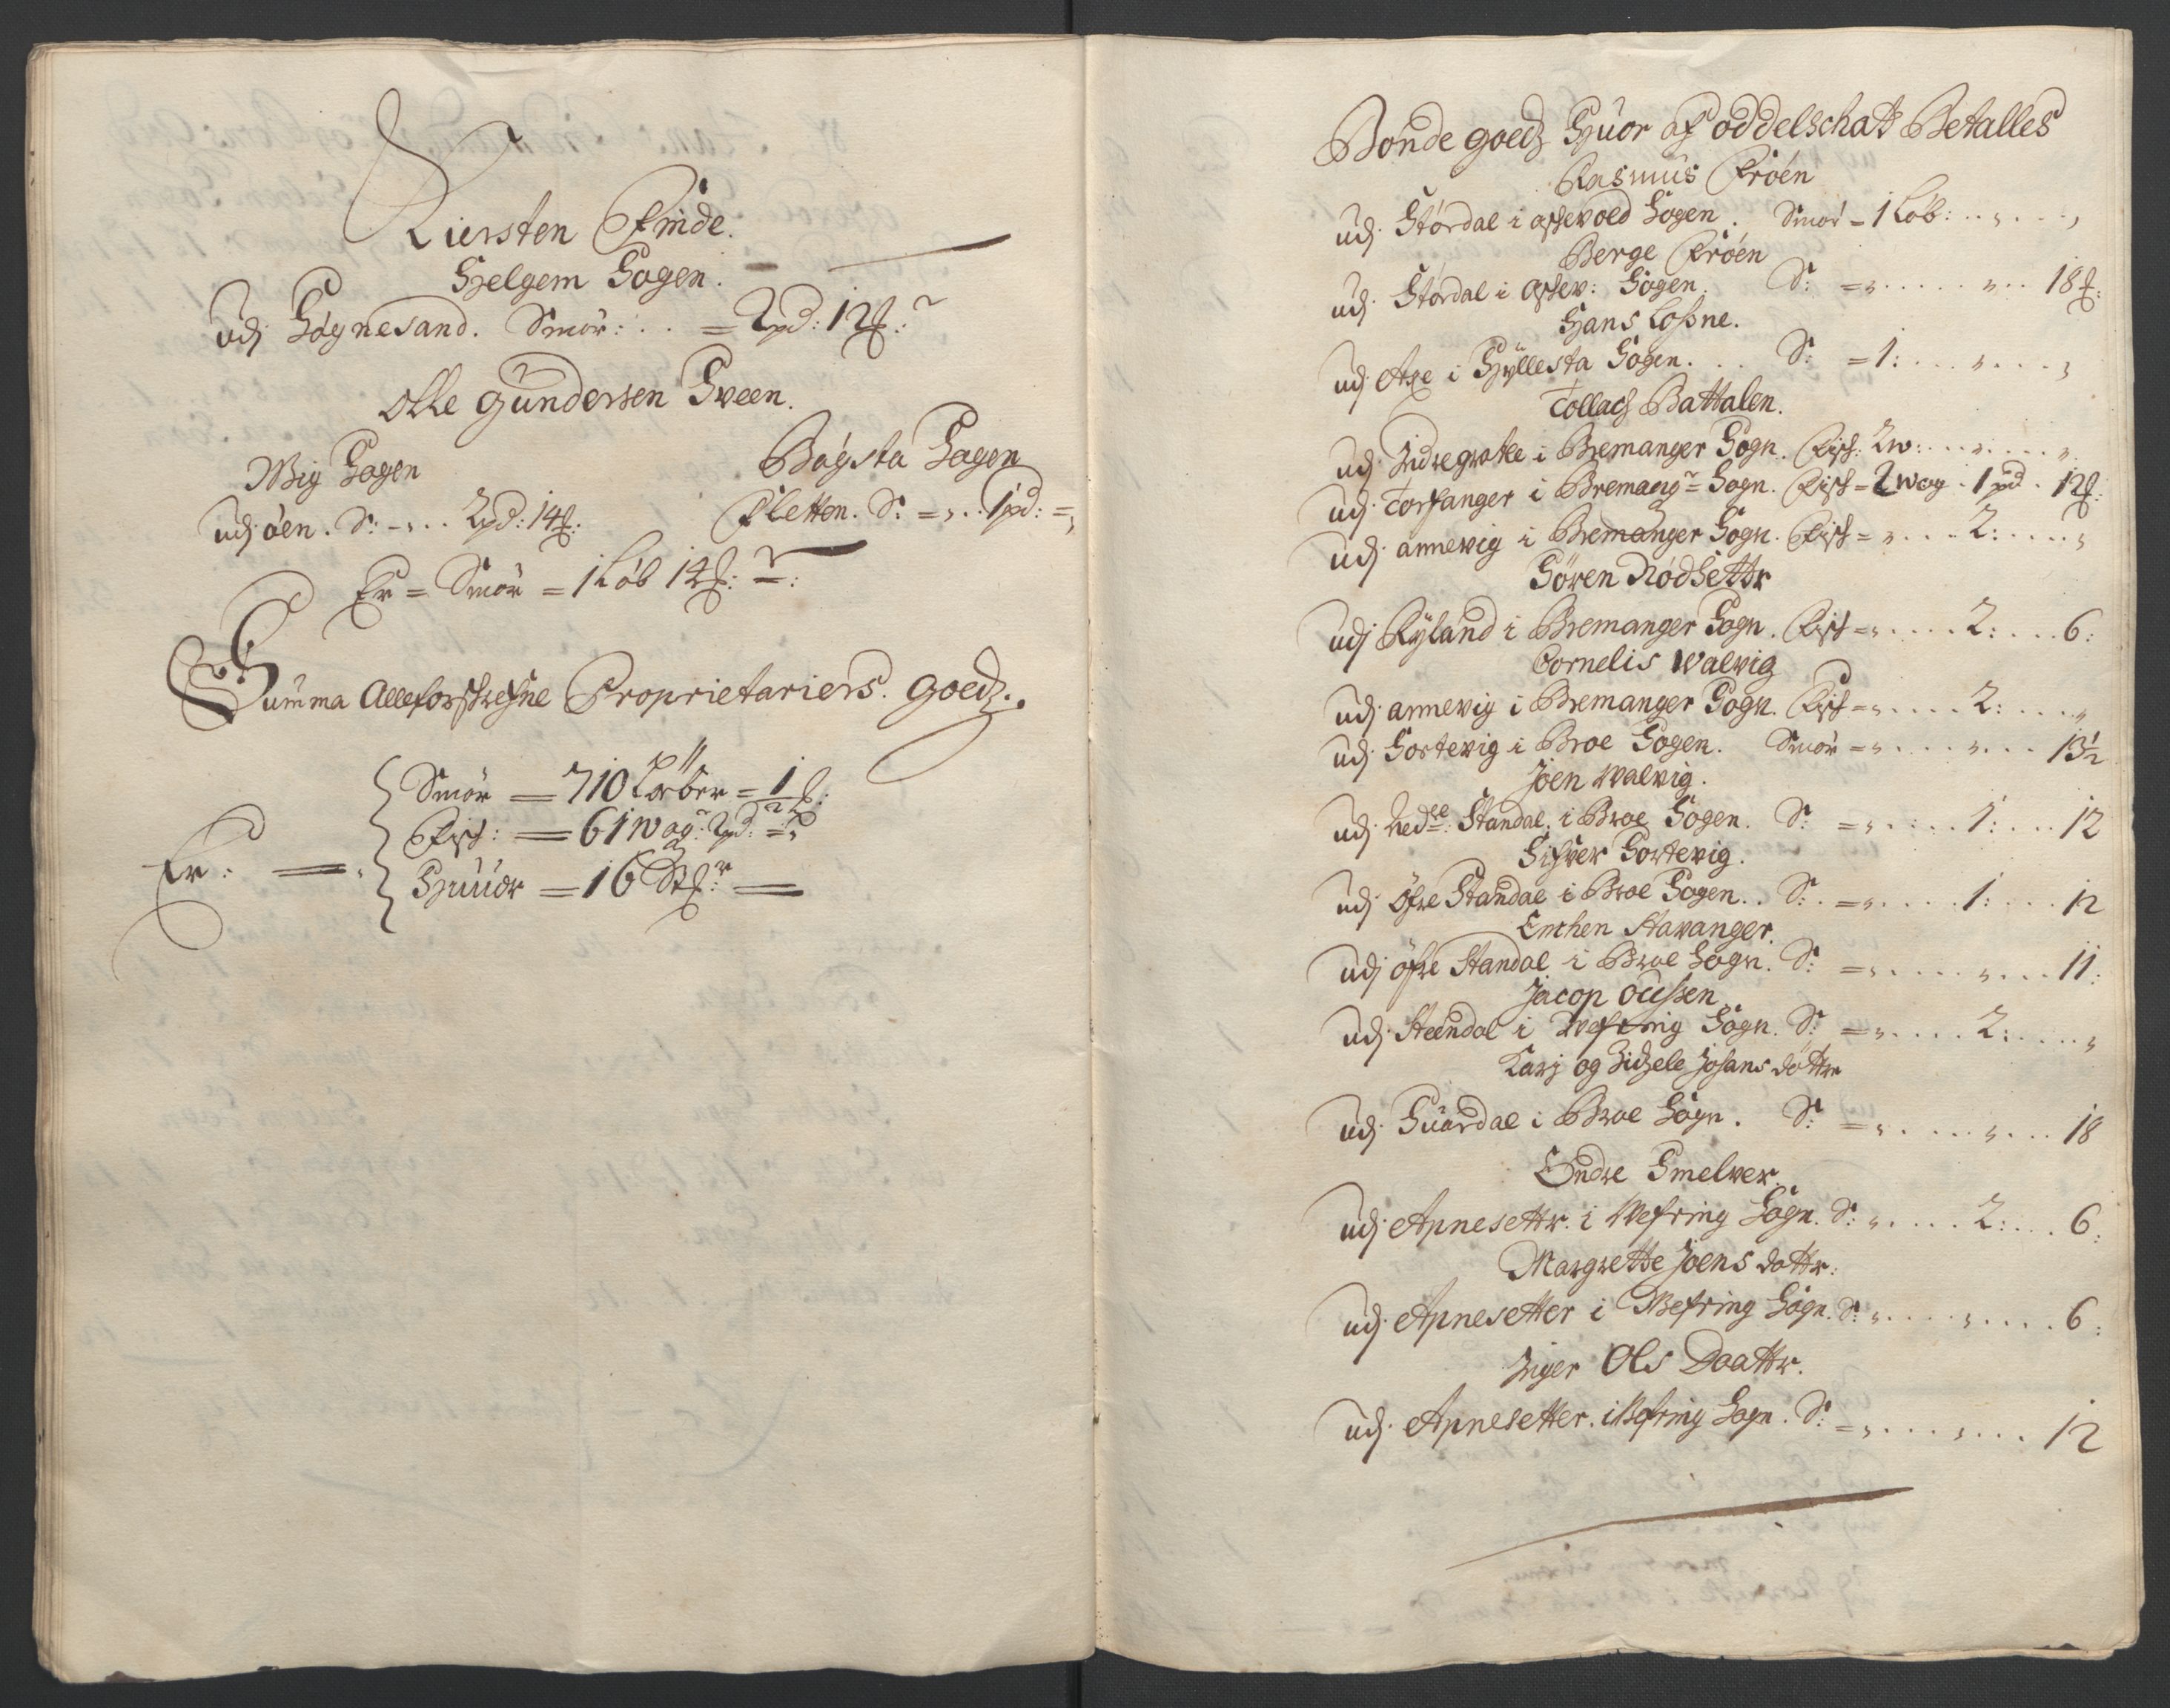 Kiersten Finde.
Helgem Sogen.
udj Søgnesand. Smör: . . = 2pd: 12℔:
Olle Gundersen Sveen.
Wiig Sogen Bøgsta Sogen
udj öen. S: – „ . . 2pd: 14℔: Fletten. S: = „ . . 1pd: = „
Er = Smör = 1 Löb 14℔: = :
Summa Alleforschrefne Proprietariers. Goedz.
Smör = 710 Löber = 1/2 ℔:
Er: = Fisch: = 61 wog: 2pd: = „
Huuder = 16 St:
Bonde goedz Huor af oddelschatt Betalles
Rasmus Fröen
udj Stördal i Aschevold Sogen. Smör = 1 Löb: . . „ . . . „
Berge Fröen
udj Stordal i Aschev: Sogen. S: = „ . . . . . „ . . 18℔:
Hans Losne.
udj Axe i Hyllesta Sogen. . . S: = 1: . . . „ . . . . „
Tollach Battalen.
udj Indregrotle i Bremanger Sogn. Fisch: 2w: . . . „ . . . . „
udj Torfanger i Bremang: Sogn. Fisch = 2 wog . 1 pd . 12℔:
udj annevig i Bremanger Sogn. Fisch = „ . . . . 2: . . . . „
Sören Rödsettr
udj Ryland i Bremanger Sogn. Fisch = „ . . . . 2: . . . 6:
Cornelis Walvig
udj annevig i Bremanger Sogn. Fisch = „ . . . . 2: . . . „
udj Gortevig i Broe Sogen. Smör = „ . . . . „ . . . 13½
Joen Walvig.
udj Nedre: Standal. i Broe Sogen. S: = „ . . . . 1: . . . 12
Sifver Gortevig.
udj öfre Standal i Broe Sogen. . S: . = „ . . . . 1: . . . 12
Enchen Stavanger.
udj öfre Standal i Broe Sogn. S: = „ . . . . . „ . . . 11:
Jacop Oelssen
udj Steendal i Wefring Sogn. S: = „ . . . . 2: . . . . „
Karj og Zidzele Johans döttre
udj Guördal i Broe Sogn. S: = „ . . . . „ . . . 18
Endre Smelver.
udj Apnesettr. i Wefring Sogn. S: „ . . . . 2: . . . 6:
Margrette Joens dottr:
udj Apnesetter i Wefring Sogn. S: „ . . . . „ . . . . 6:
Inger Ols Daattr.
udj Apnesetter. i Wefring Sogn. S: = „ . . . . „ . . . 12